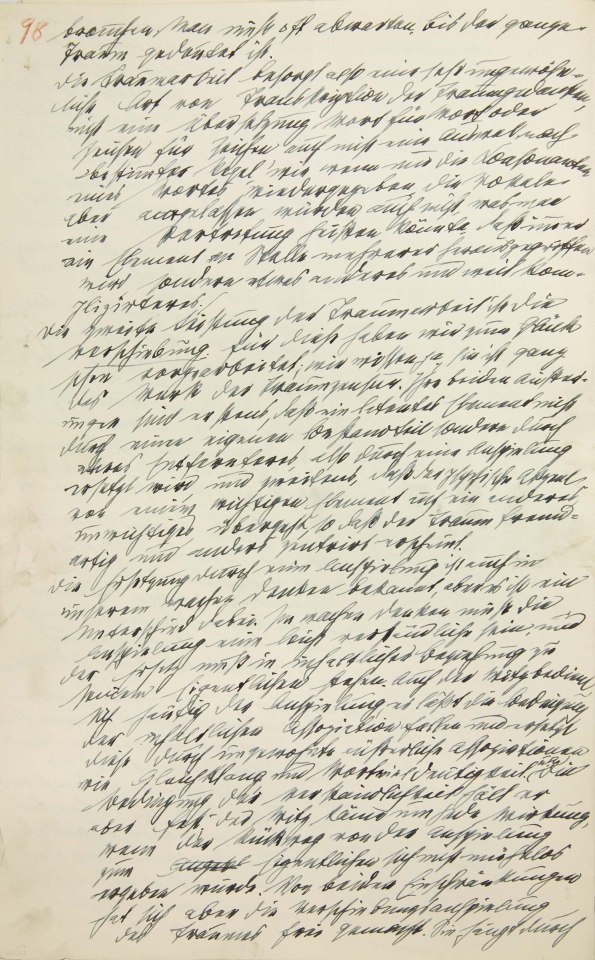 98
brauchen. Man muß oft abwarten, bis der ganze
Traum gedeutet ist.
Die Traumarbeit besorgt also eine sehr ungewöhn-
liche Art von Transkription der Traumgedanken,
nicht eine Übersetzung Wort für Wort oder
Zeichen für Zeichen, auch nicht eine Auswahl nach
bestimmter Regel, wie wenn nur die Konsonanten
eines Wortes wiedergegeben, die Vokale
aber ausgelassen würden, auch nicht, was man
eine Vertretung heißen könnte, daß immer
ein Element an Stelle mehrerer herausgegriffen
wird, sondern etwas anderes und weit kom-
plizirteres.
Die zweite Leistung der Traumarbeit ist die
Verschiebung. Für diese haben wir zum Glück
schon vorgearbeitet; wir wissen ja, sie ist ganz
das Werk der Traumzensur. Ihre beiden Äußer-
ungen sind erstens, daß ein latentes Element nicht
durch einen eigenen Bestandteil, sondern durch
etwas Entfernteres, also durch eine Anspielung
ersetzt wird, und zweitens, daß der psychische Akzent
von einem wichtigen Element auf ein anderes,
unwichtiges übergeht, so daß der Traum fremd-
artig und anders zentrirt erscheint.
Die Ersetzung durch eine Anspielung ist auch in
unserem wachen Denken bekannt, aber es ist ein
Unterschied dabei. Im wachen Denken muß die
Anspielung eine leicht verständliche sein, und
der Ersatz muß in inhaltlicher Beziehung zu
seinem Eigentlichen stehen. Auch der Witz bedient
sich häufig der Anspielung, er läßt die Bedingung
der inhaltlichen Assoziation fallen und ersetzt
diese durch ungewohnte äußerliche Assoziationen
wie Gleichklang und Wortvieldeutigkeit u a. Die
Bedingung der Verständlichkeit hält er
aber fest; der Witz käme um jede Wirkung,
wenn der Rückweg von der Anspielung
zum Eigentlichen sich nicht mühelos
ergeben würde. Von beiden Einschränkungen
hat sich aber die Verschiebungsanspielung
des Traumes frei gemacht. Sie hängt durch